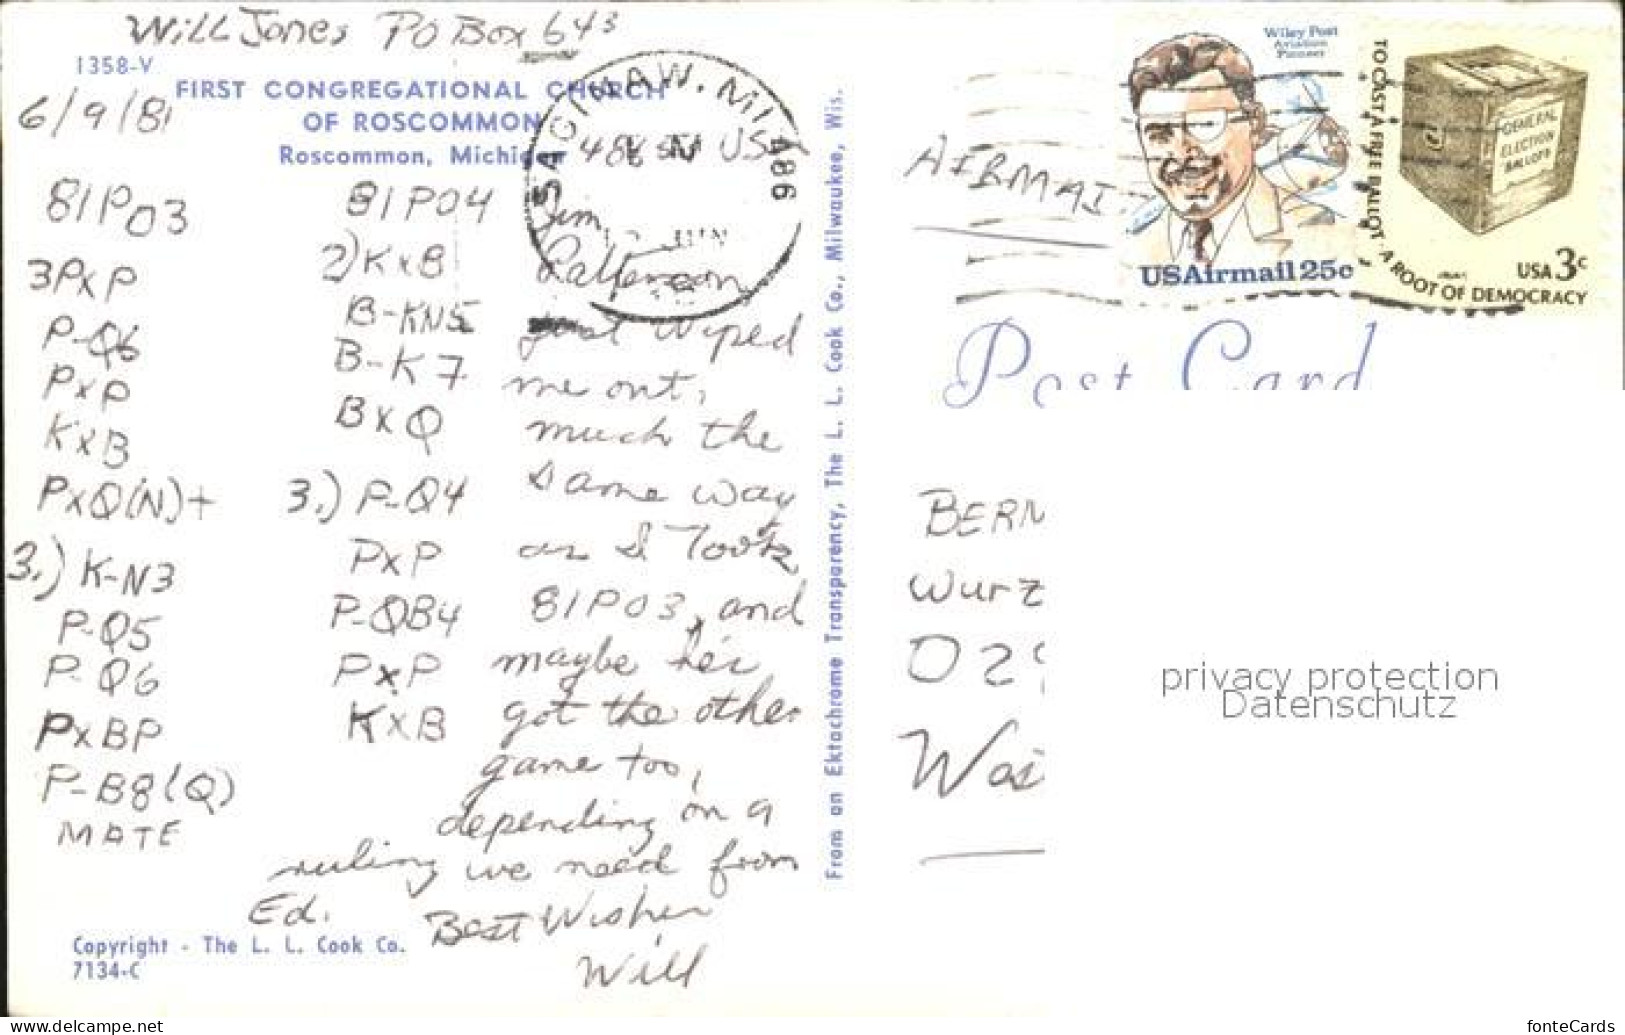 Will Jones PO Box 643
1358-V
FIRST CONGREGATIONAL CHURCH
6/9/81
OF ROSCOMMON
Roscommon, Michigan
SAGINAW, MI 486
JUN
81P03
3PxP
P-Q6
PxP
KxB
PxQ(N)+
3.) K-N3
P-Q5
P-Q6
PxBP
P-B8(Q)
MATE
81P04
2) KxB
B-KN5
B-K7
BxQ
3.) P-Q4
PxP
P-QB4
PxP
KxB
USA
Jim
Patterson
just wiped
me out,
much the
same way
as I took
81P03, and
maybe he's
got the other
game too,
depending on a
ruling we need from
Ed.
Best Wishes
Will
Copyright - The L. L. Cook Co.
7134-C
From an Ektachrome Transparency, The L. L. Cook Co., Milwaukee, Wis.
AIRMAI
Wiley Post
Aviation
Pioneer
USAirmail 25c
TO CAST A FREE BALLOT · A ROOT OF DEMOCRACY
GENERAL
ELECTION
BALLOTS
USA 3c
Post Card
BERN
Wurz
D 29
privacy protection
Datenschutz
www.delcampe.net
fonteCards